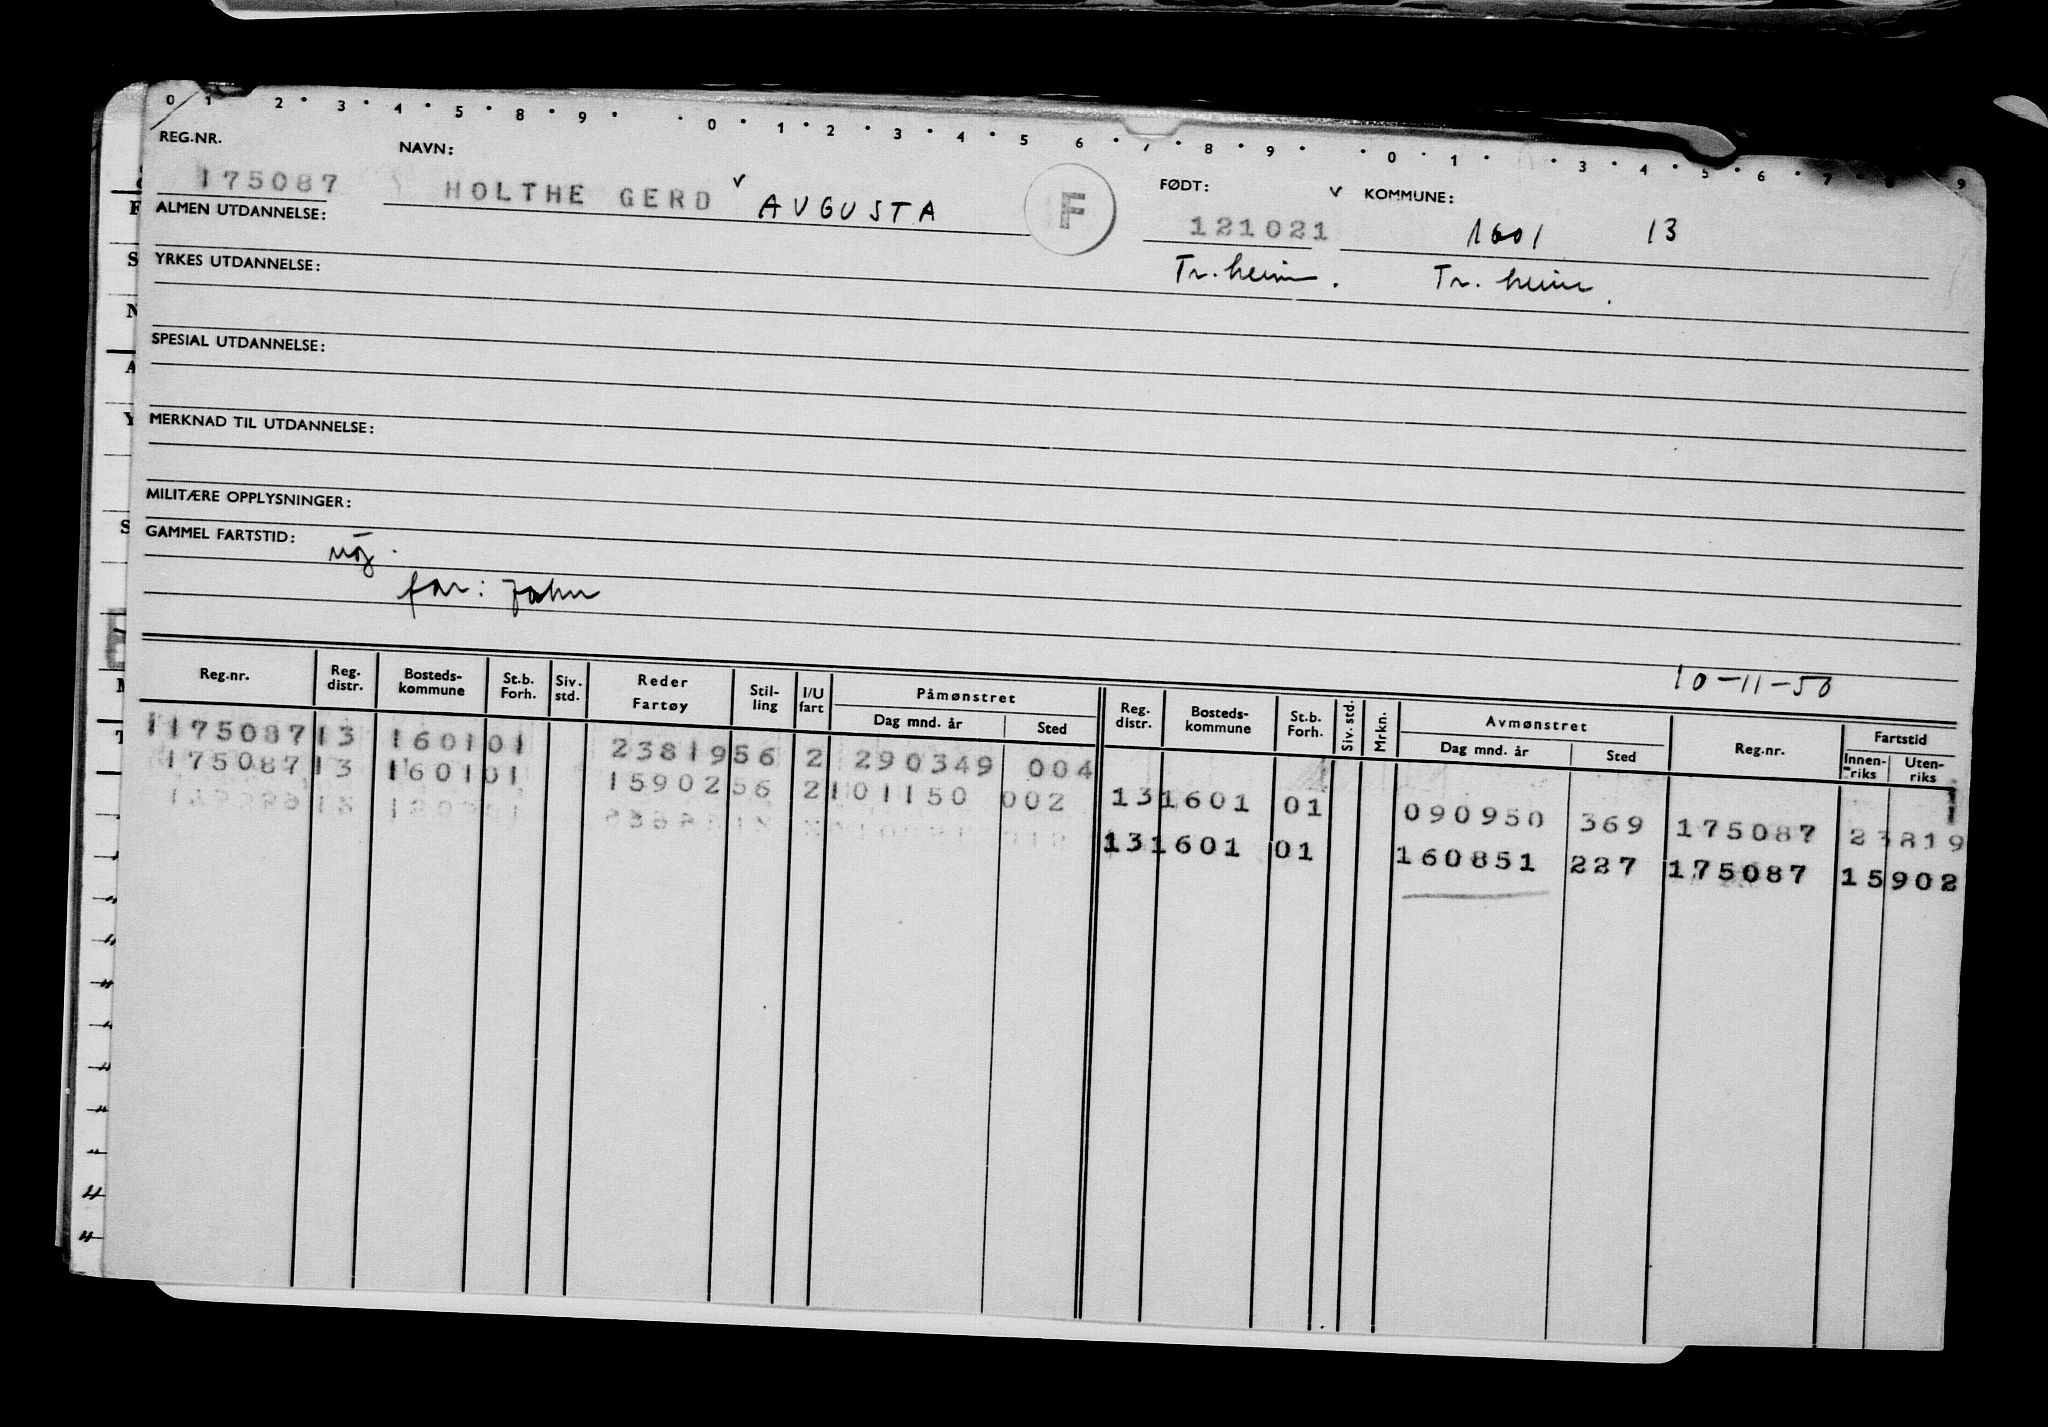 0 1 2 · 3 · 4 · 5 · 8 · 9 · · 0 · 1 · 2 · 3 · 4 · 5 6 · 7 · 8 · 9 · · 0 · 1 · · 3 · 4 · 5 · 6 · 7 · 8 · 9
REG.NR. NAVN: FØDT: KOMMUNE:
175087 HOLTHE GERD AUGUSTA F 121021 1601 13
ALMEN UTDANNELSE:
Tr.heim. Tr. heim.
YRKES UTDANNELSE:
SPESIAL UTDANNELSE:
MERKNAD TIL UTDANNELSE:
MILITÆRE OPPLYSNINGER:
GAMMEL FARTSTID:
far: John
10-11-50
Reg.nr. Reg. distr. Bosteds-kommune St.b. Forh. Siv. std. Reder Fartøy Stil-ling I/U fart Påmønstret Dag mnd. år Sted Reg. distr. Bosteds-kommune St.b. Forh. Siv. std. Mrkn. Avmønstret Dag mnd. år Sted Reg.nr. Fartstid Innen-riks Uten-riks
1175087 13 1601 01 23819 56 2 290349 004
175087 13 1601 01 15902 56 2 101150 002 13 1601 01 090950 369 175087 23819
13 1601 01 160851 227 175087 15902